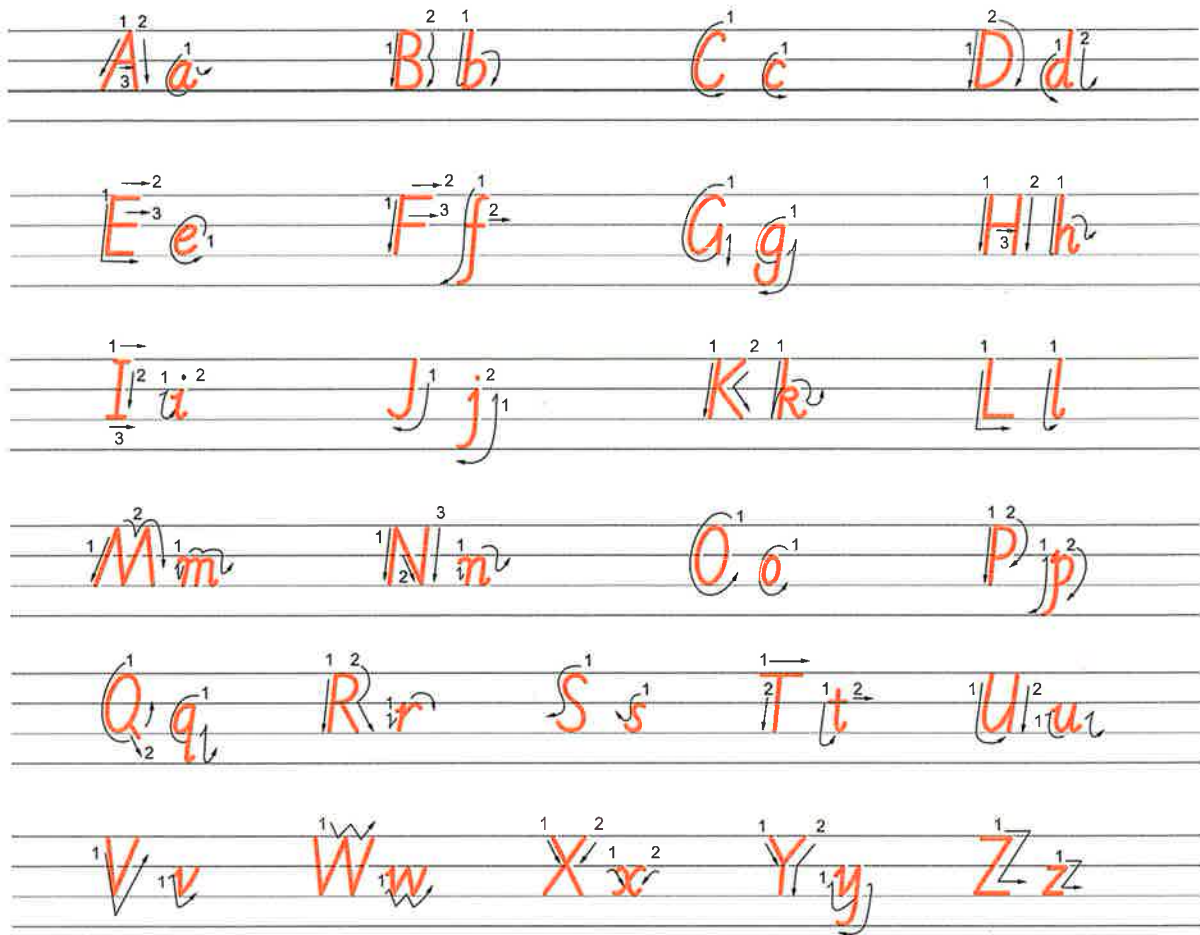 A a B b C c D d
E e F f G g H h
I i J j K k L l
M m N n O o P p
Q q R r S s T t U u
V v W w X x Y y Z z